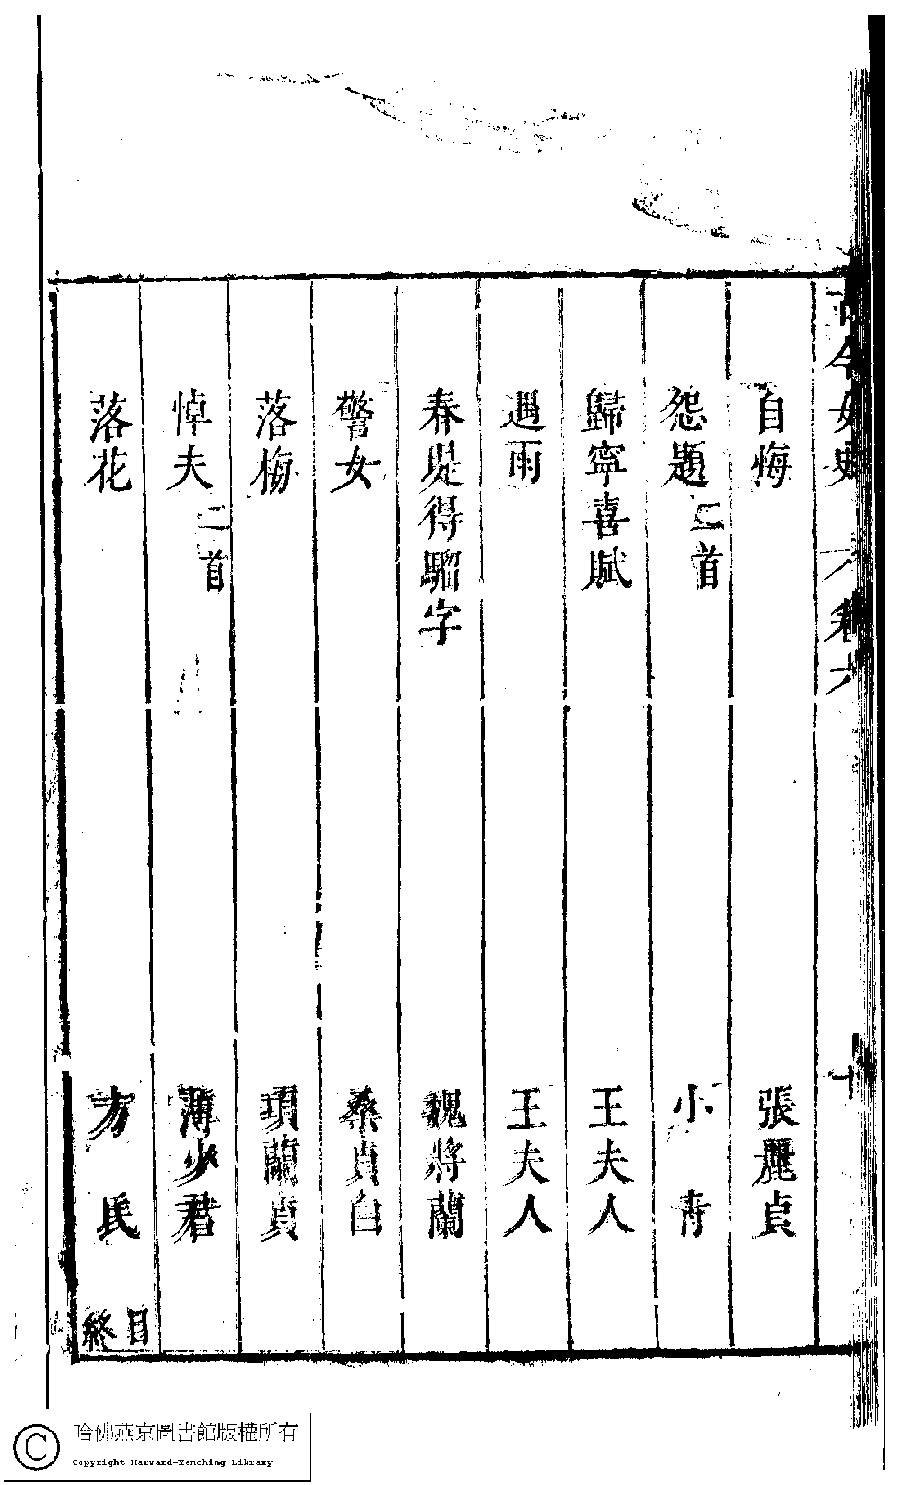 古今女史 卷六 十
自悔 張麗貞
怨題二首 小青
歸寧喜賦 王夫人
遇雨 王夫人
春堤得騮字 魏將蘭
警女 桑貞白
落梅 項蘭貞
悼夫二首 薄少君
落花 方氏
目終
哈佛燕京圖書館版權所有
Copyright Harvard-Yenching Library